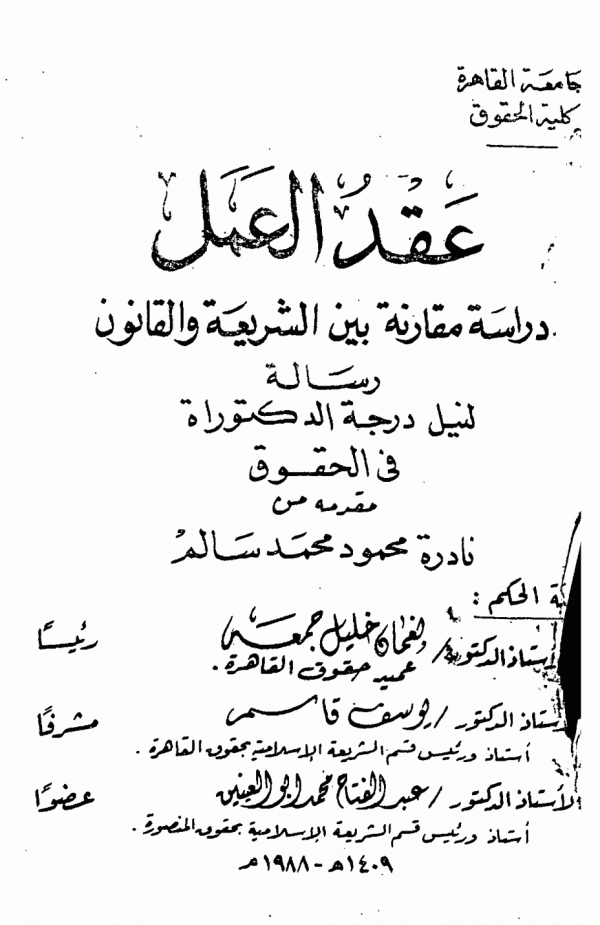 جامعة القاهرة
كلية الحقوق
عَقْدُ العَمَل
دراسة مقارنة بين الشريعة والقانون
رسالة
لنيل درجة الدكتوراة
فى الحقوق
مقدمه من
نادرة محمود محمد سالم
الحكم :
الدكتور / نعمان خليل جمعه رئيسًا
عميد حقوق القاهرة .
الدكتور / يوسف قاسم مشرفًا
أستاذ ورئيس قسم الشريعة الإسلامية بحقوق القاهرة .
الأستاذ الدكتور / عبد الفتاح محمد ابو العينين عضوًا
أستاذ ورئيس قسم الشريعة الإسلامية بحقوق المنصورة .
١٤٠٩هـ - ١٩٨٨م